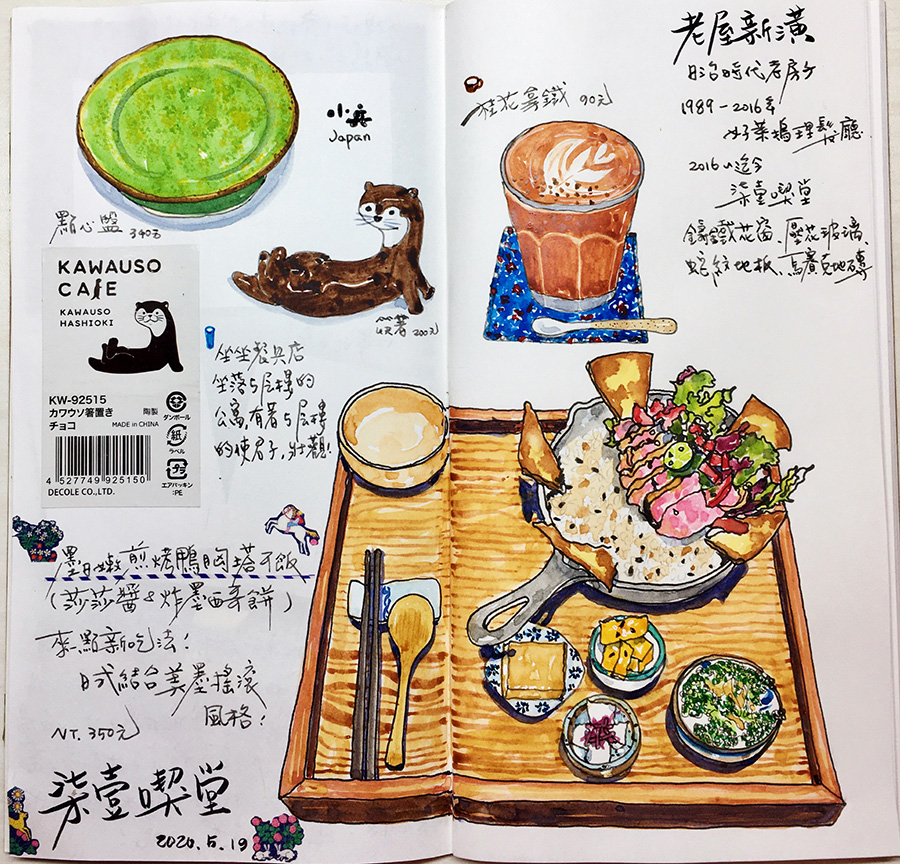 小兵
Japan
點心盤 340元
KAWAUSO
CAFE
KAWAUSO
HASHIOKI
KW-92515
カワウソ箸置き
チョコ
陶製
MADE in CHINA
4 527749 925150
DECOLE CO.,LTD.
ダンボール
紙
ラベル
プラ
エアパッキン
:PE
200元
坐坐餐具店
坐落5層樓的
公寓,有著5層樓
的使君子,壯觀!
墨日嫩煎烤鴨胸塔可飯
(莎莎醬&炸墨西哥餅)
來點新吃法!
日式結合美墨搖滾
風格!
NT.350元
柒壹喫堂
2020.5.19
桂花拿鐵 90元
老屋新潢
日治時代老房子
1989-2016年
好萊塢理髮廳
2016~迄今
柒壹喫堂
鑄鐵花窗、壓花玻璃、
蛇紋地板、馬賽克地磚